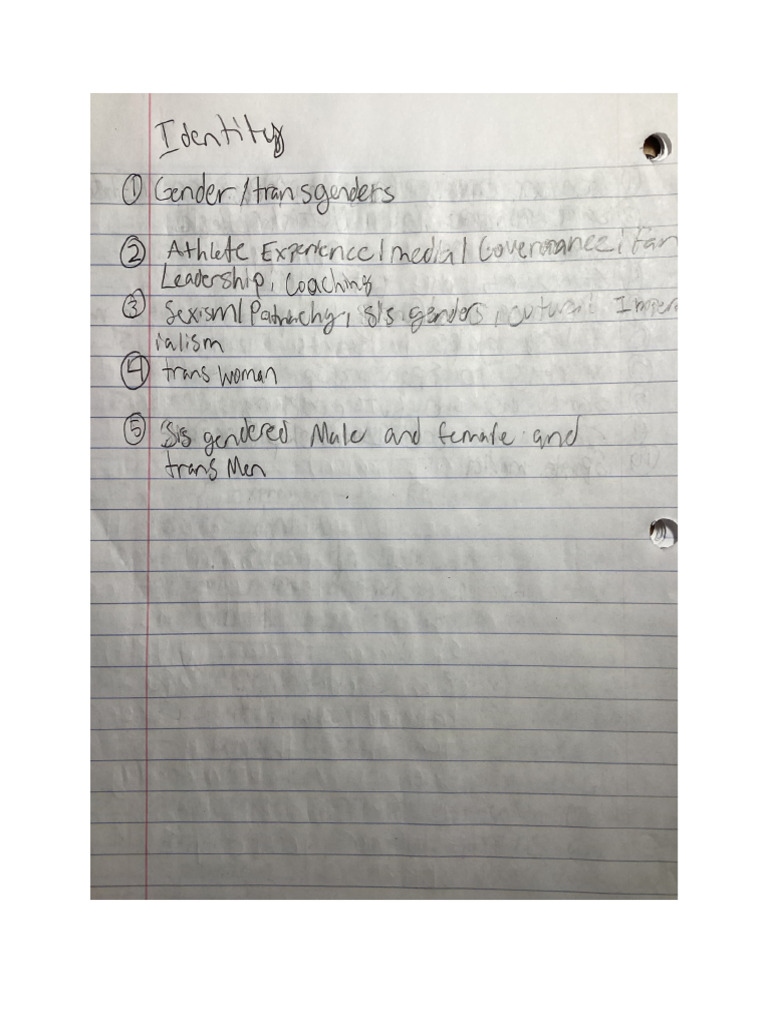 Identity
① Gender/transgenders
② Athlete Experience/media/Governance; fan
Leadership, Coaching
③ Sexism/Patriachy, Sis genders, cutural Imper
ialism
④ trans woman
⑤ Sis gendered Male and female and
trans Men